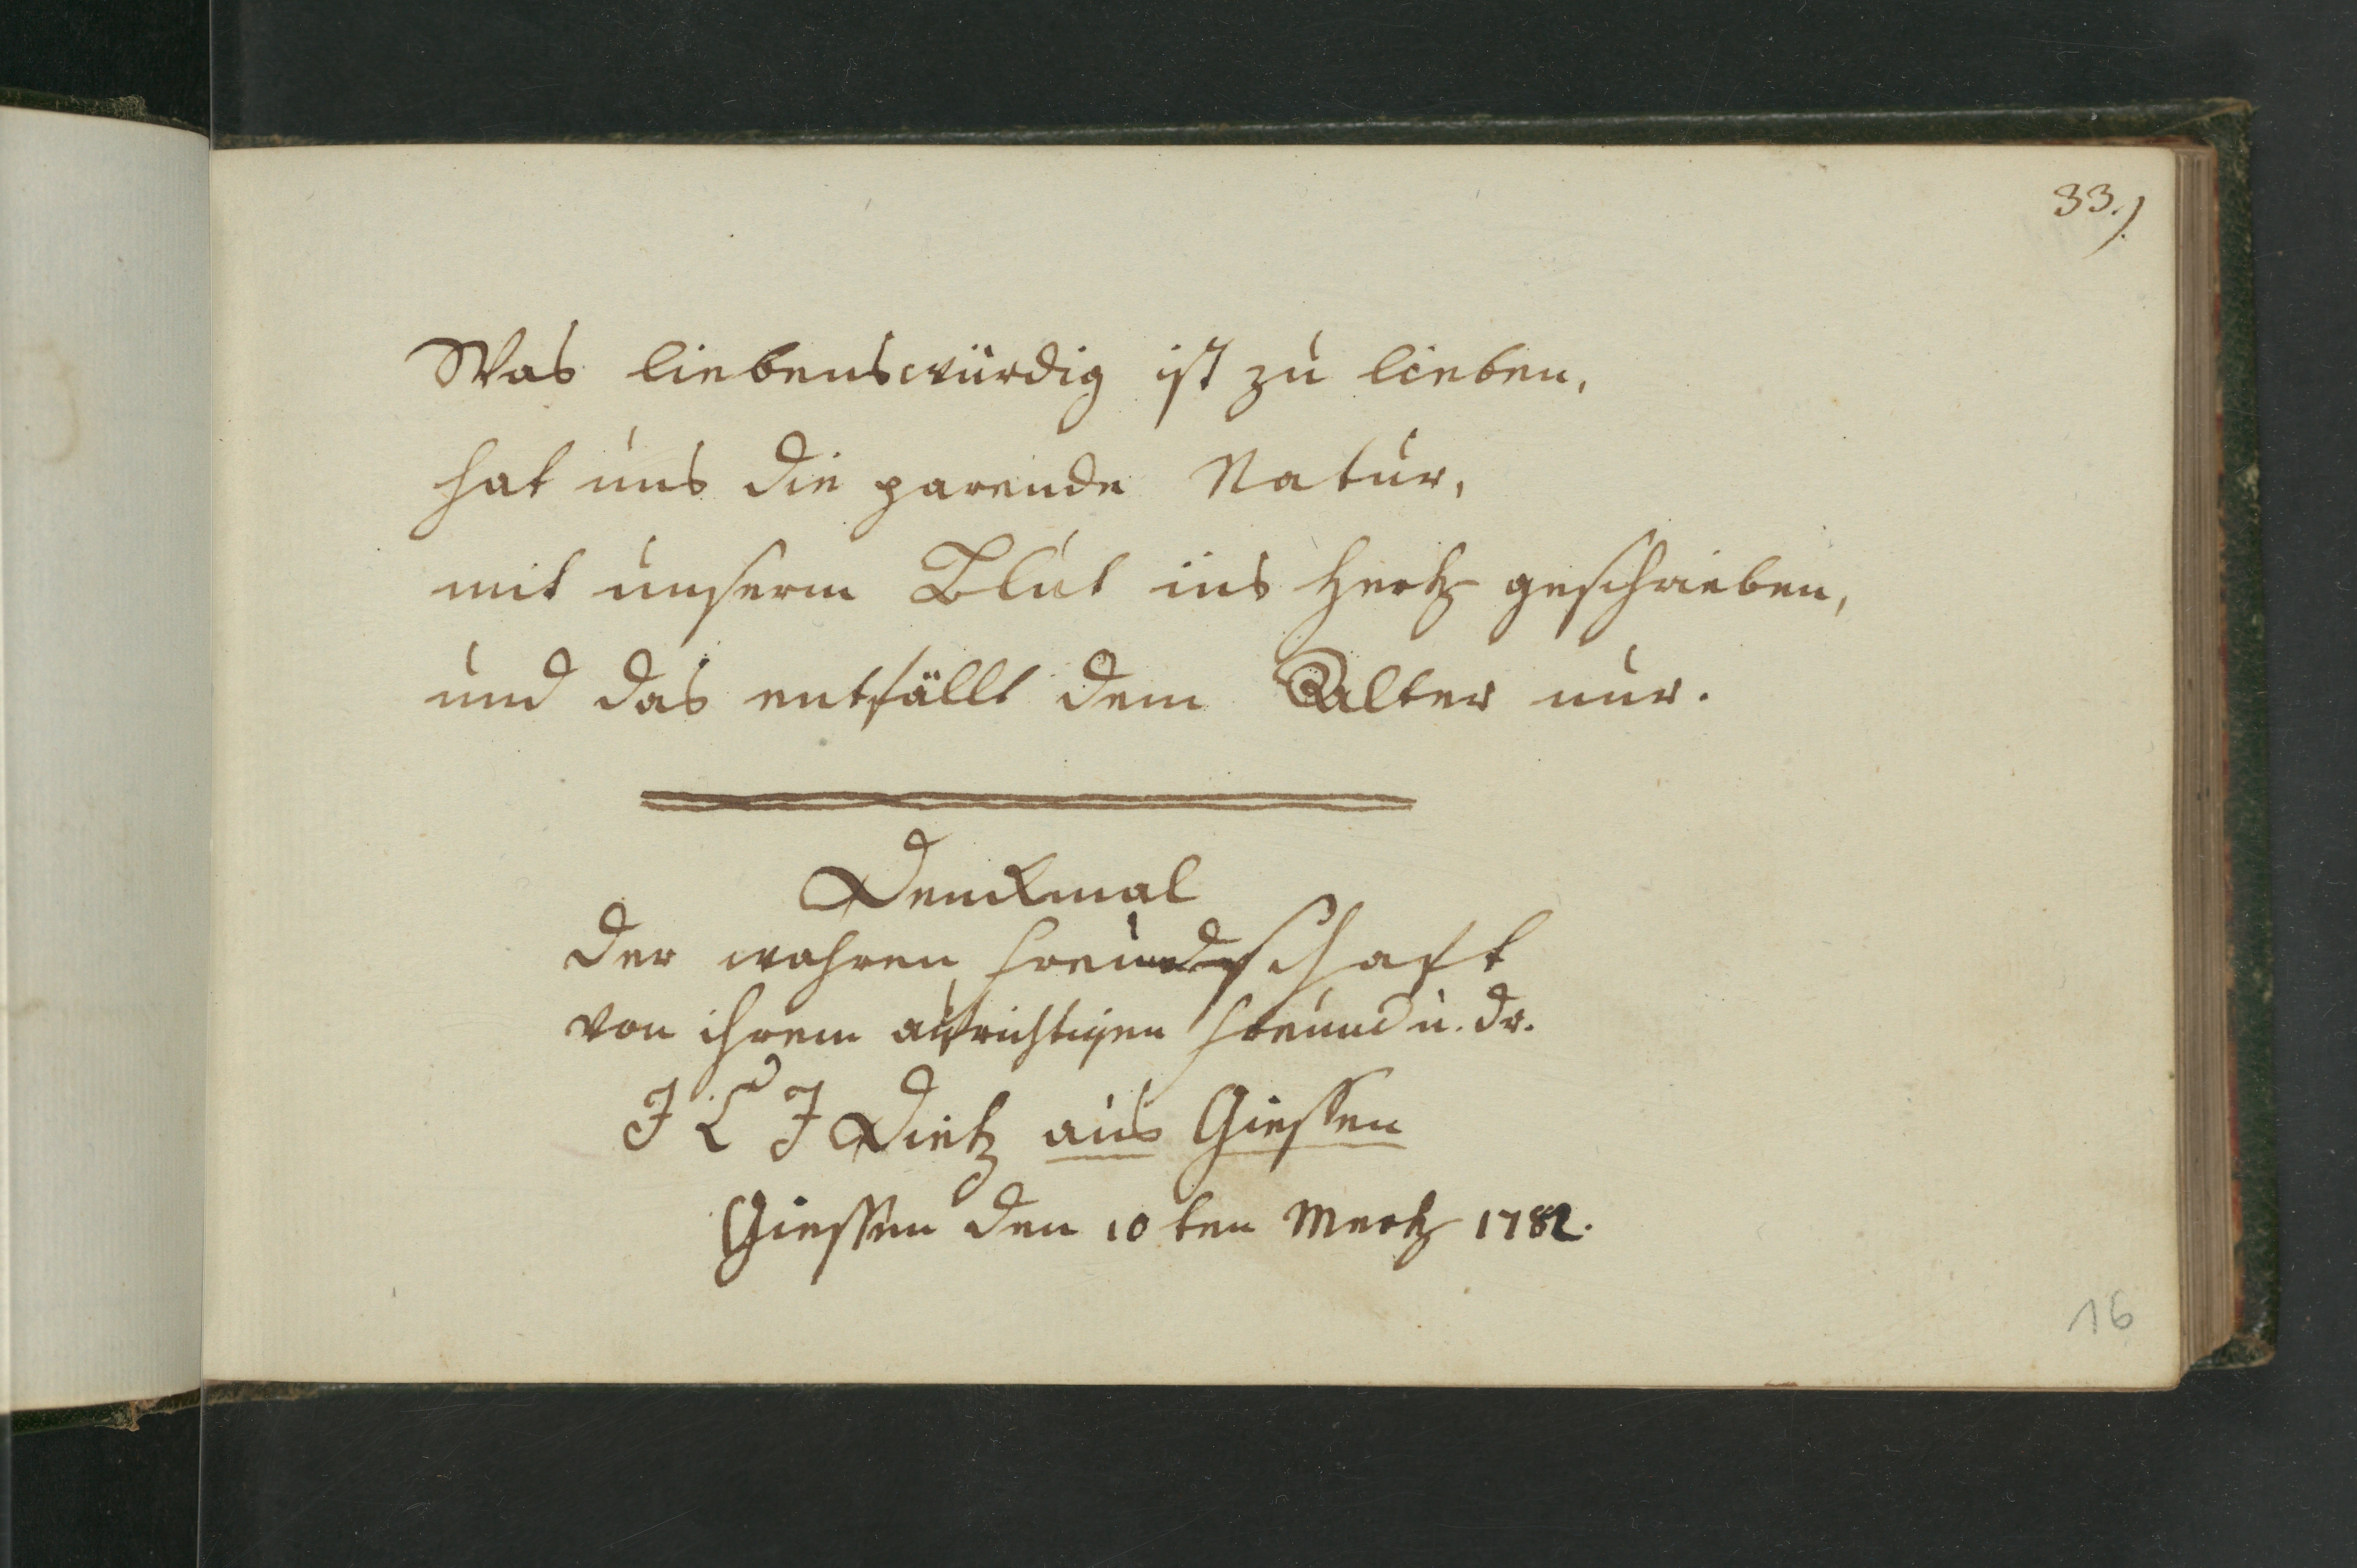 33.)
Was liebenswürdig ist zu lieben,
hat uns die parende Natur,
mit unserm Blut ins Hertz geschrieben,
und das entfällt dem Alter nur.
Denckmal
der wahren Freundschaft
von ihrem aufrichtigen Freund u. dr.
J L J Dietz aus Giessen
Giessen den 10 ten Mertz 1782.
16